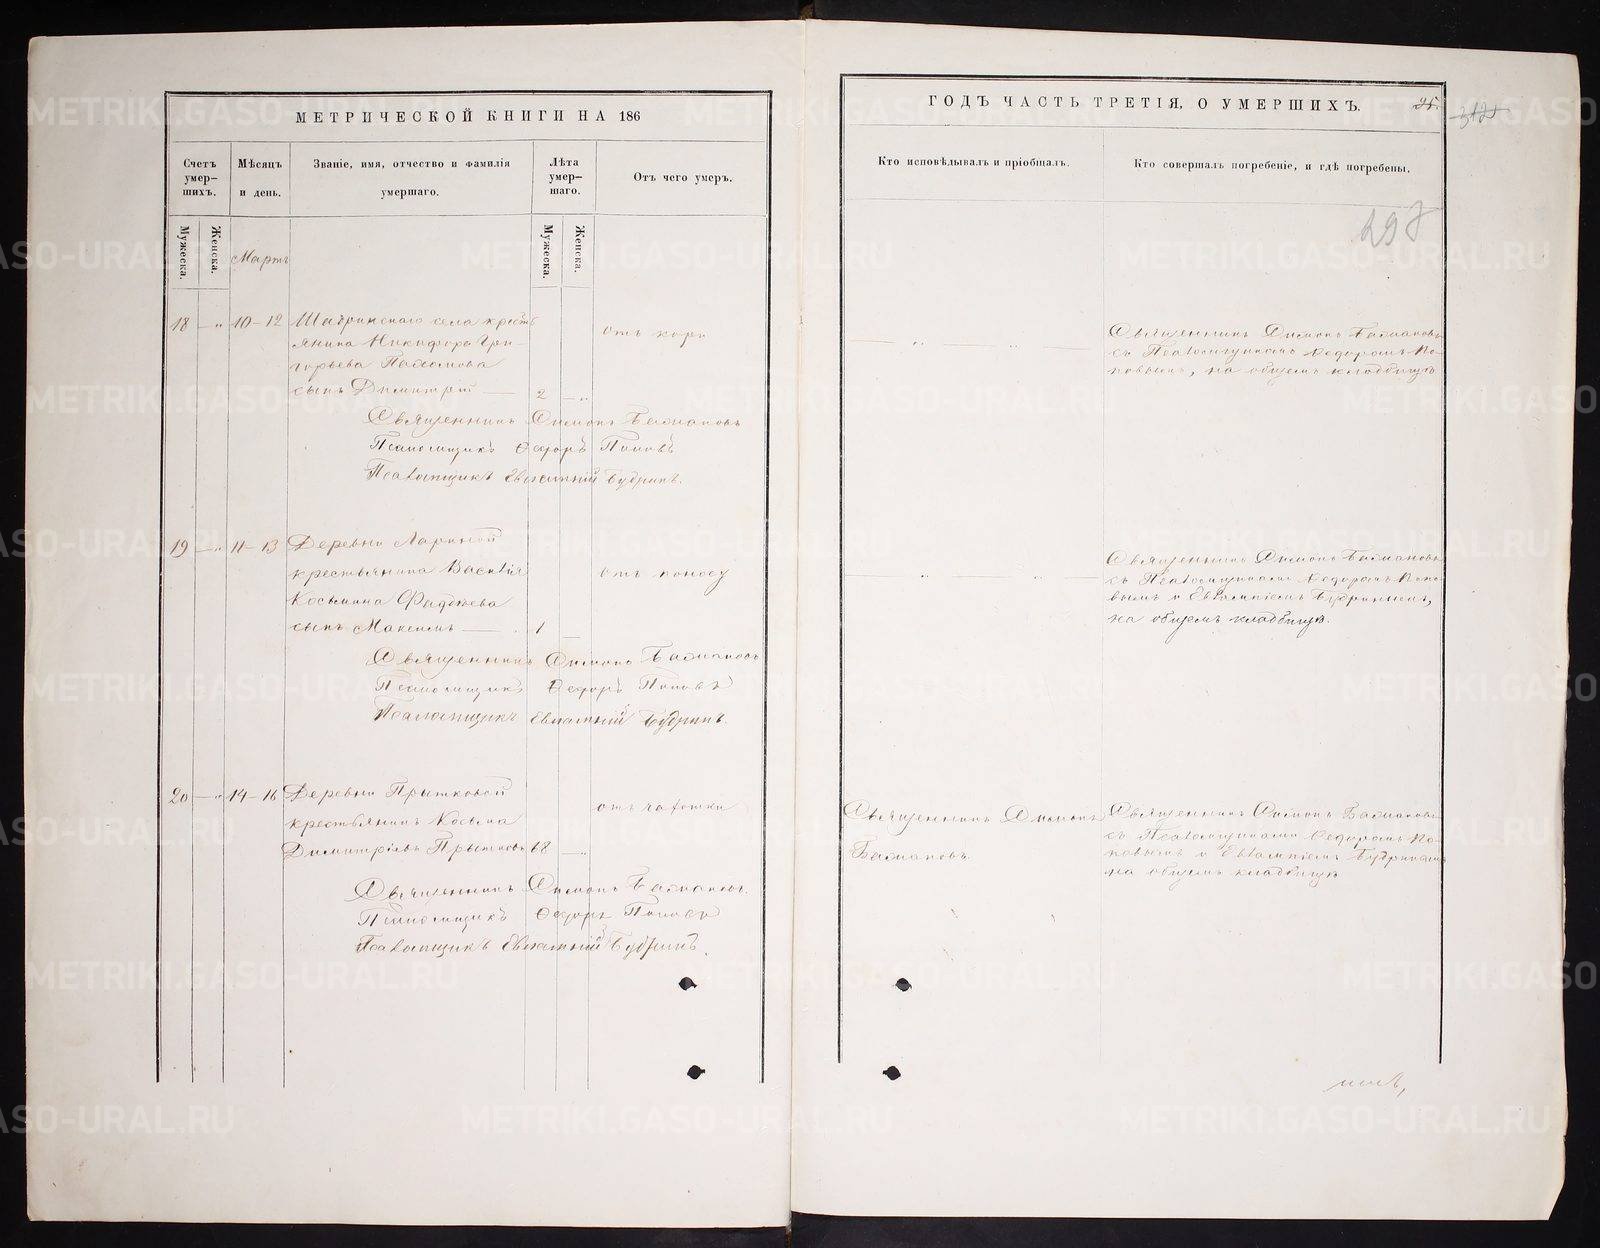 МЕТРИЧЕСКОЙ КНИГИ НА 186
Счетъ умер-шихъ.
Мѣсяцъ и день.
Званіе, имя, отчество и фамилія умершаго.
Лѣта умер-шаго.
Отъ чего умеръ.
Мужеска.
Женска.
Мужеска.
Женска.
Мартъ
18 — „ 10-12 Шабринскаго села кресть
янина Никифора Гри-
горьева Пахомова
сынъ Димитрій — 2 — „
отъ кори
Священникъ Симонъ Бажановъ
Псаломщикъ Ѳедоръ Поповъ
Псаломщикъ Евлампій Будринъ.
19 — „ 11-13 Деревни Лариной
крестьянина Василія
Косьмина
сынъ Максимъ — 1 —
отъ поносу
Священникъ Симонъ Бажановъ
Псаломщикъ Ѳедоръ Поповъ
Псаломщикъ Евлампій Будринъ.
20 — „ 14-16 Деревни Прытковой
крестьянинъ Косьма
Димитріевъ Прытковъ 68 — „
отъ чахотки
Священникъ Симонъ Бажановъ.
Псаломщикъ Ѳедоръ Поповъ
Псаломщикъ Евлампій Будринъ.
ГОДЪ ЧАСТЬ ТРЕТІЯ, О УМЕРШИХЪ.
Кто исповѣдывалъ и пріобщалъ.
Кто совершалъ погребеніе, и гдѣ погребены.
Священникъ Симонъ Бажановъ
съ Псаломщикомъ Ѳедоромъ По-
повымъ, на общемъ кладбищѣ
Священникъ Симонъ Бажановъ
съ Псаломщиками Ѳедоромъ Попо-
вымъ и Евлампіемъ Будринымъ,
на общемъ кладбищѣ.
Священникъ Симонъ
Бажановъ.
Священникъ Симонъ Бажановъ
съ Псаломщиками Ѳедоромъ По-
повымъ и Евлампіемъ Будринымъ
на общемъ кладбищѣ
METRIKI.GASO-URAL.RU